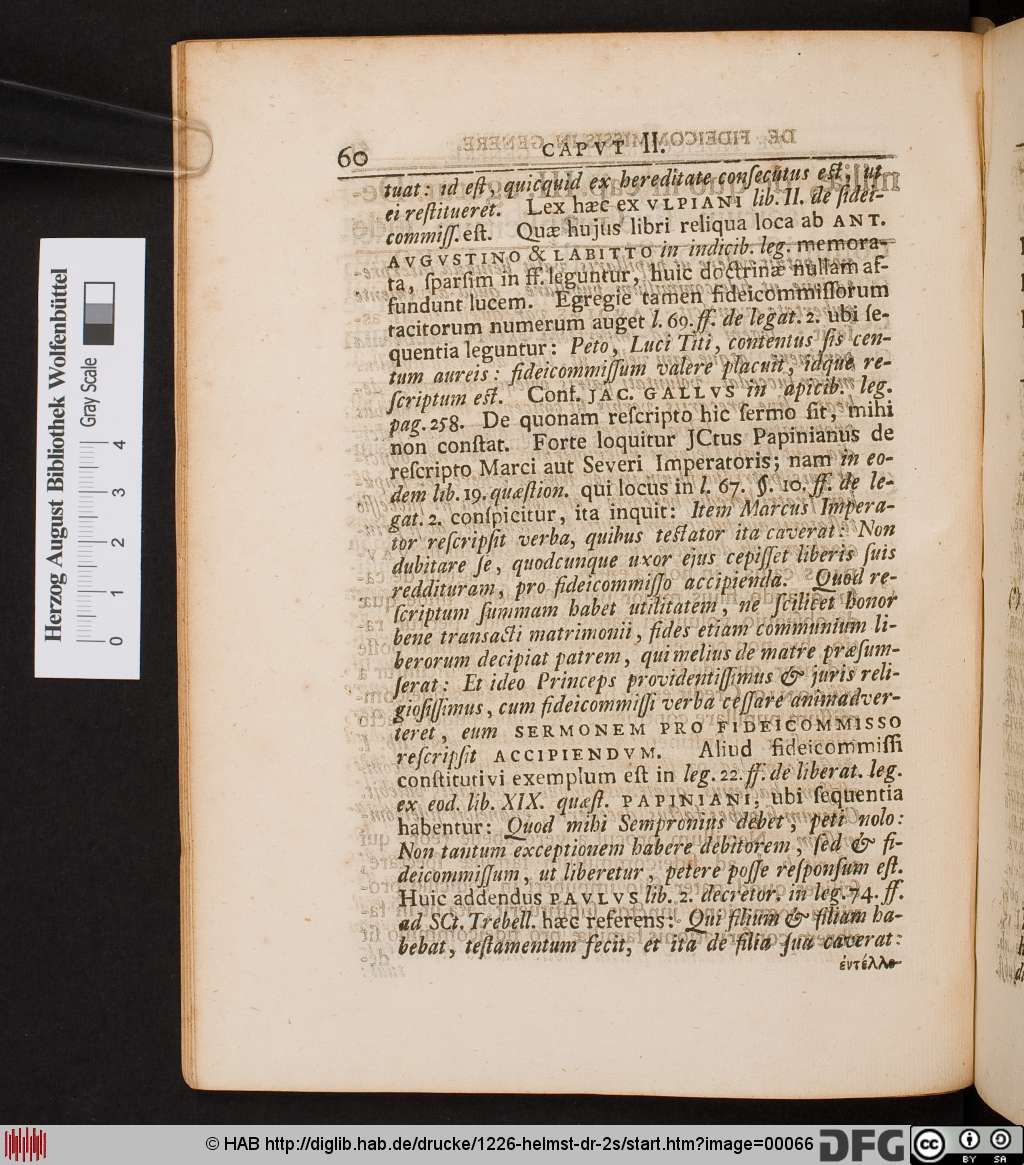 60 CAPVT II.
tuat: id eſt, quicquid ex hereditate conſecutus eſt, ut
ei reſtitueret. Lex hæc ex VLPIANI lib. II. de fidei-
commiſſ. eſt. Quæ hujus libri reliqua loca ab ANT.
AVGVSTINO & LABITTO in indicib. leg. memora-
ta, ſparſim in ff. leguntur, huic doctrinæ nullam af-
fundunt lucem. Egregie tamen fideicommiſſorum
tacitorum numerum auget l. 69. ff. de legat. 2. ubi ſe-
quentia leguntur: Peto, Luci Titi, contentus ſis cen-
tum aureis: fideicommiſſum valere placuit, idque re-
ſcriptum eſt. Conf. JAC. GALLVS in apicib. leg.
pag. 258. De quonam reſcripto hic ſermo ſit, mihi
non conſtat. Forte loquitur JCtus Papinianus de
reſcripto Marci aut Severi Imperatoris; nam in eo-
dem lib. 19. quæſtion. qui locus in l. 67. §. 10. ff. de le-
gat. 2. conſpicitur, ita inquit: Item Marcus Impera-
tor reſcripſit verba, quibus teſtator ita caverat: Non
dubitare ſe, quodcunque uxor ejus cepiſſet liberis ſuis
reddituram, pro fideicommiſſo accipienda. Quod re-
ſcriptum ſummam habet utilitatem, ne ſcilicet honor
bene transacti matrimonii, fides etiam communium li-
berorum decipiat patrem, qui melius de matre præſum-
ſerat: Et ideo Princeps providentiſſimus & juris reli-
gioſiſſimus, cum fideicommiſſi verba ceſſare animadver-
teret, eum SERMONEM PRO FIDEICOMMISSO
reſcripſit ACCIPIENDVM. Aliud fideicommiſſi
conſtitutivi exemplum eſt in leg. 22. ff. de liberat. leg.
ex eod. lib. XIX. quæſt. PAPINIANI, ubi ſequentia
habentur: Quod mihi Sempronius debet, peti nolo:
Non tantum exceptionem habere debitorem, ſed & fi-
deicommiſſum, ut liberetur, petere poſſe reſponſum eſt.
Huic addendus PAVLVS lib. 2. decretor. in leg. 74. ff.
ad SCt. Trebell. hæc referens: Qui filium & filiam ha-
bebat, teſtamentum fecit, et ita de filia ſua caverat:
ἐντέλλο-
Herzog August Bibliothek Wolfenbüttel
Gray Scale
0 1 2 3 4
© HAB http://diglib.hab.de/drucke/1226-helmst-dr-2s/start.htm?image=00066 DFG cc BY SA